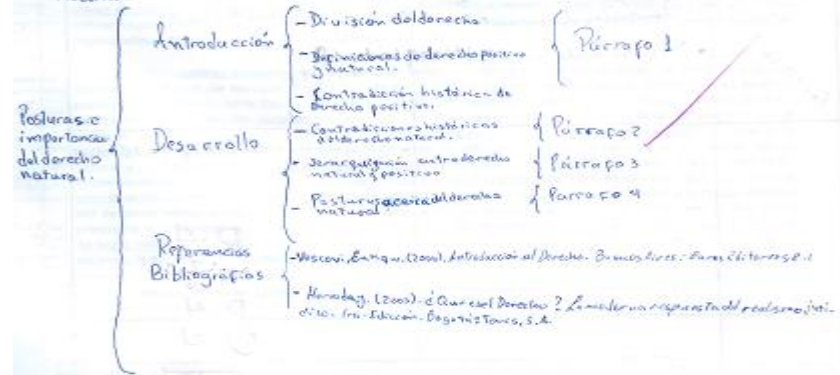 Posturas e
importancia
del derecho
natural.
Introducción
- División del derecho
- Definiciones de derecho positivo
y natural.
- Contradicción histórica de
derecho positivo.
Párrafo 1
Desarrollo
- Contradicciones históricas
del derecho natural.
Párrafo 2
- Jerarquización entre derecho
natural y positivo
Párrafo 3
- Posturas acerca del derecho
natural
Parrafo 4
Referencias
Bibliográfias
- Vescovi, (2000). Introducción al Derecho. Buenos Aires:
- (2005). ¿Que es el Derecho? La moderna respuesta del realismo jurí-
dico. Edicción. Bogotá: S.A.